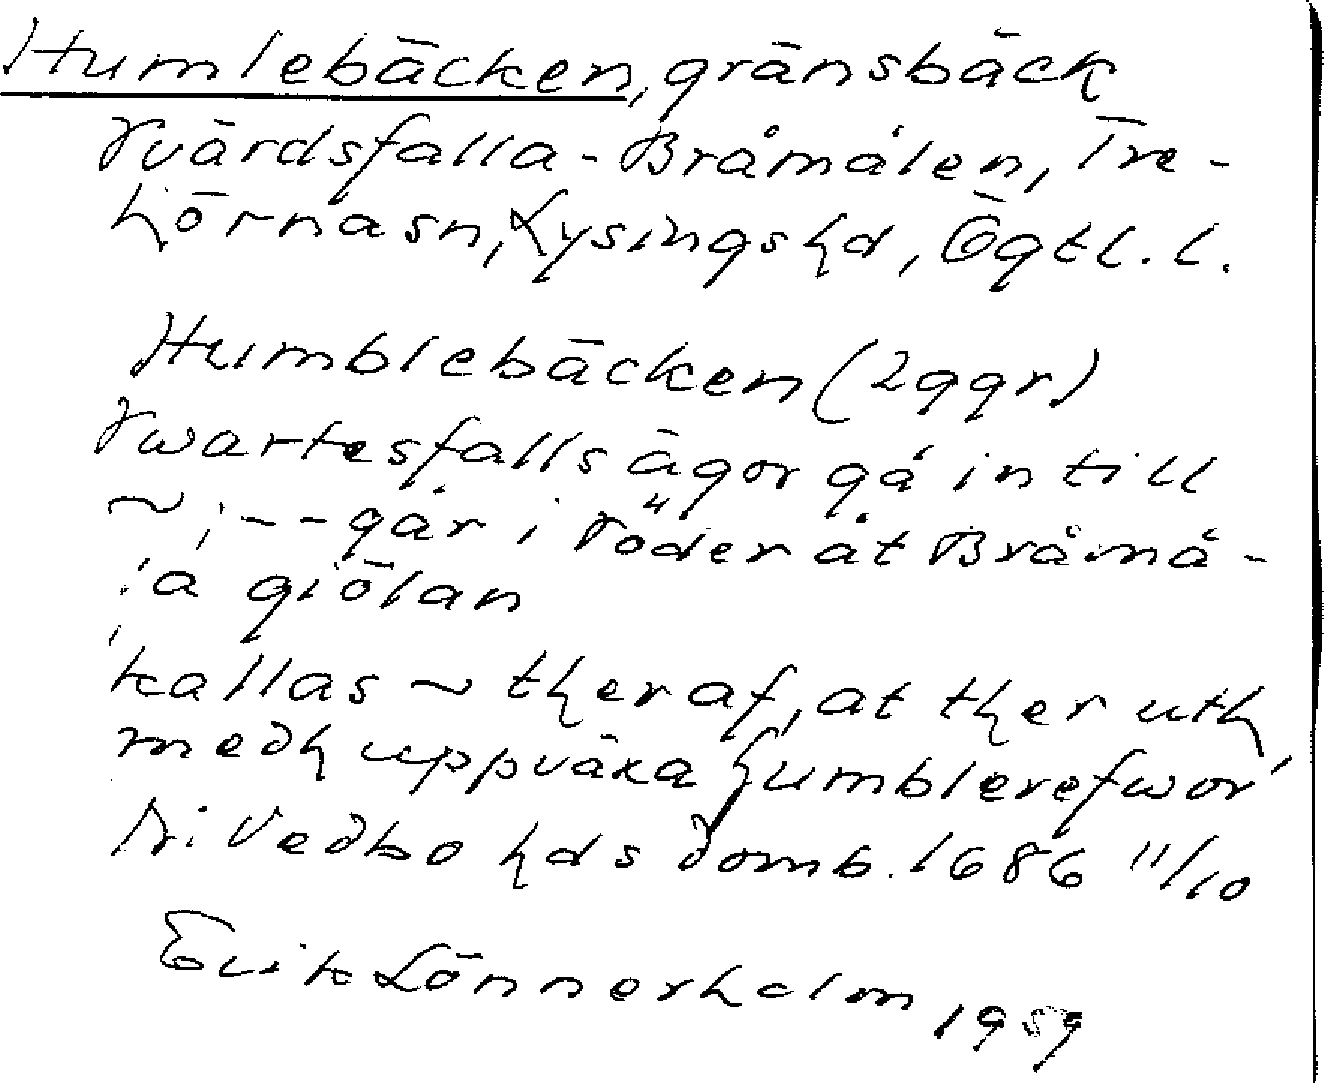 Humlebäcken, gränsbäck
Tvärdsfalla - Bråmålen, Tre-
hörnasn, Lysings hd, Ögtl. l.
Humblebäcken (2 ggr)
Twartesfalls ägor gå in till
~ ; - - går i Töder åt Bråmå-
la giölan
kallas ~ ther af, at ther uth
medh uppväxa humblerefwor
N. Vedbo hds domb. 1686 11/10
Erik Lönnerholm 1959